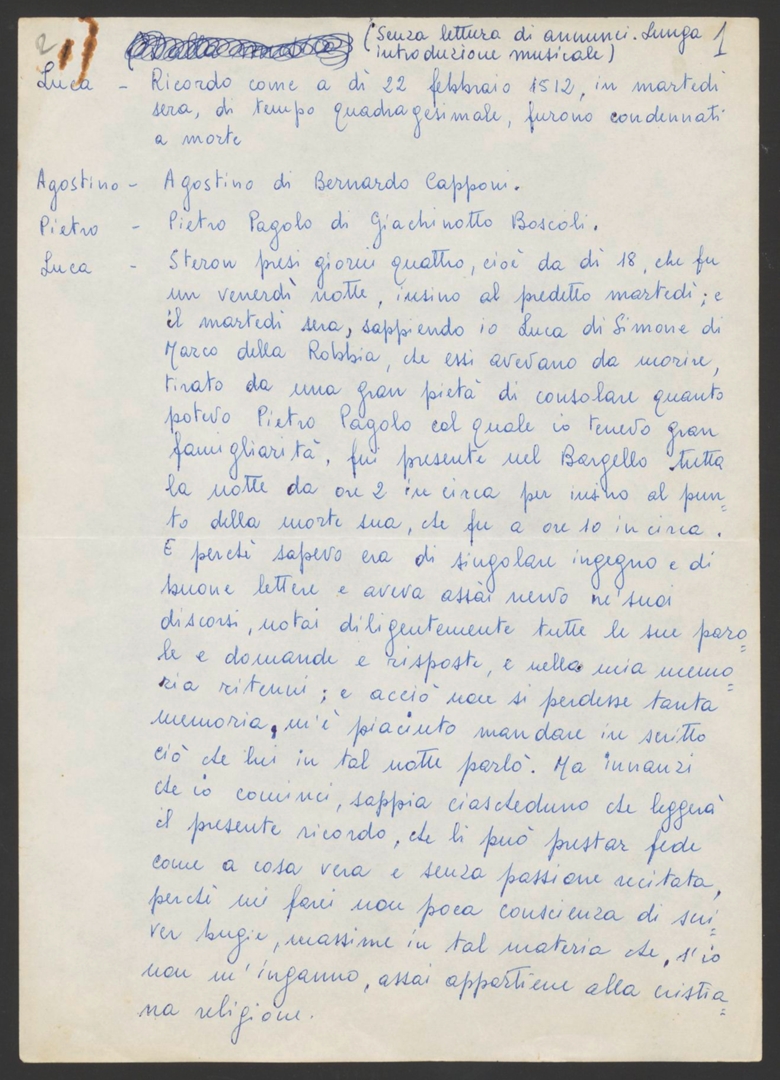 2 1) (Senza lettura di annunci. Lunga 1
introduzione musicale)
Luca - Ricordo come a dì 22 febbraio 1512, in martedì
sera, di tempo quadragesimale, furono condennati
a morte
Agostino - Agostino di Bernardo Capponi.
Pietro - Pietro Pagolo di Giachinotto Boscoli.
Luca - Steron presi giorni quattro, cioè da dì 18, che fu
un venerdì notte, insino al predetto martedì; e
il martedì sera, sappiendo io Luca di Simone di
Marco della Robbia, che essi avevano da morire,
tirato da una gran pietà di consolare quanto
potevo Pietro Pagolo col quale io tenevo gran
famigliarità, fui presente nel Bargello tutta
la notte da ore 2 in circa per insino al pun=
to della morte sua, che fu a ore 10 in circa.
E perchè sapevo era di singolare ingegno e di
buone lettere e aveva assai nervo ne' suoi
discorsi, notai diligentemente tutte le sue paro=
le e domande e risposte, e nella mia memo=
ria ritenni; e acciò non si perdesse tanta
memoria, m'è piaciuto mandare in scritto
ciò che lui in tal notte parlò. Ma innanzi
che io cominci, sappia ciascheduno che leggerà
il presente ricordo, che li può prestar fede
come a cosa vera e senza passione recitata,
perchè mi farei non poca conscienza di scri=
ver bugie, massime in tal materia che, s'io
non m'inganno, assai appartiene alla cristia=
na religione.